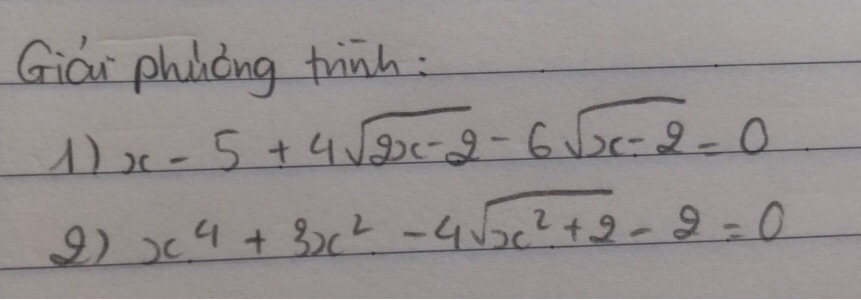 Giải phương trình:
1) x - 5 + 4√(2x-2) - 6√(x-2) = 0
2) x⁴ + 3x² - 4√(x²+2) - 2 = 0